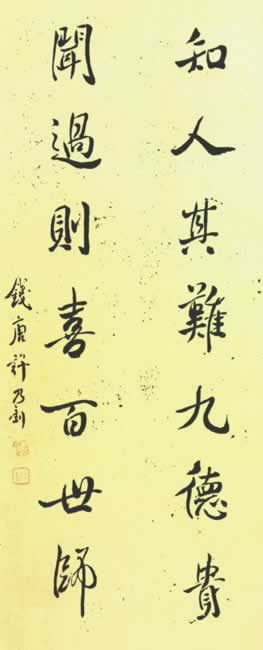 知人其難九德貴
聞過則喜百世師
錢唐許乃釗